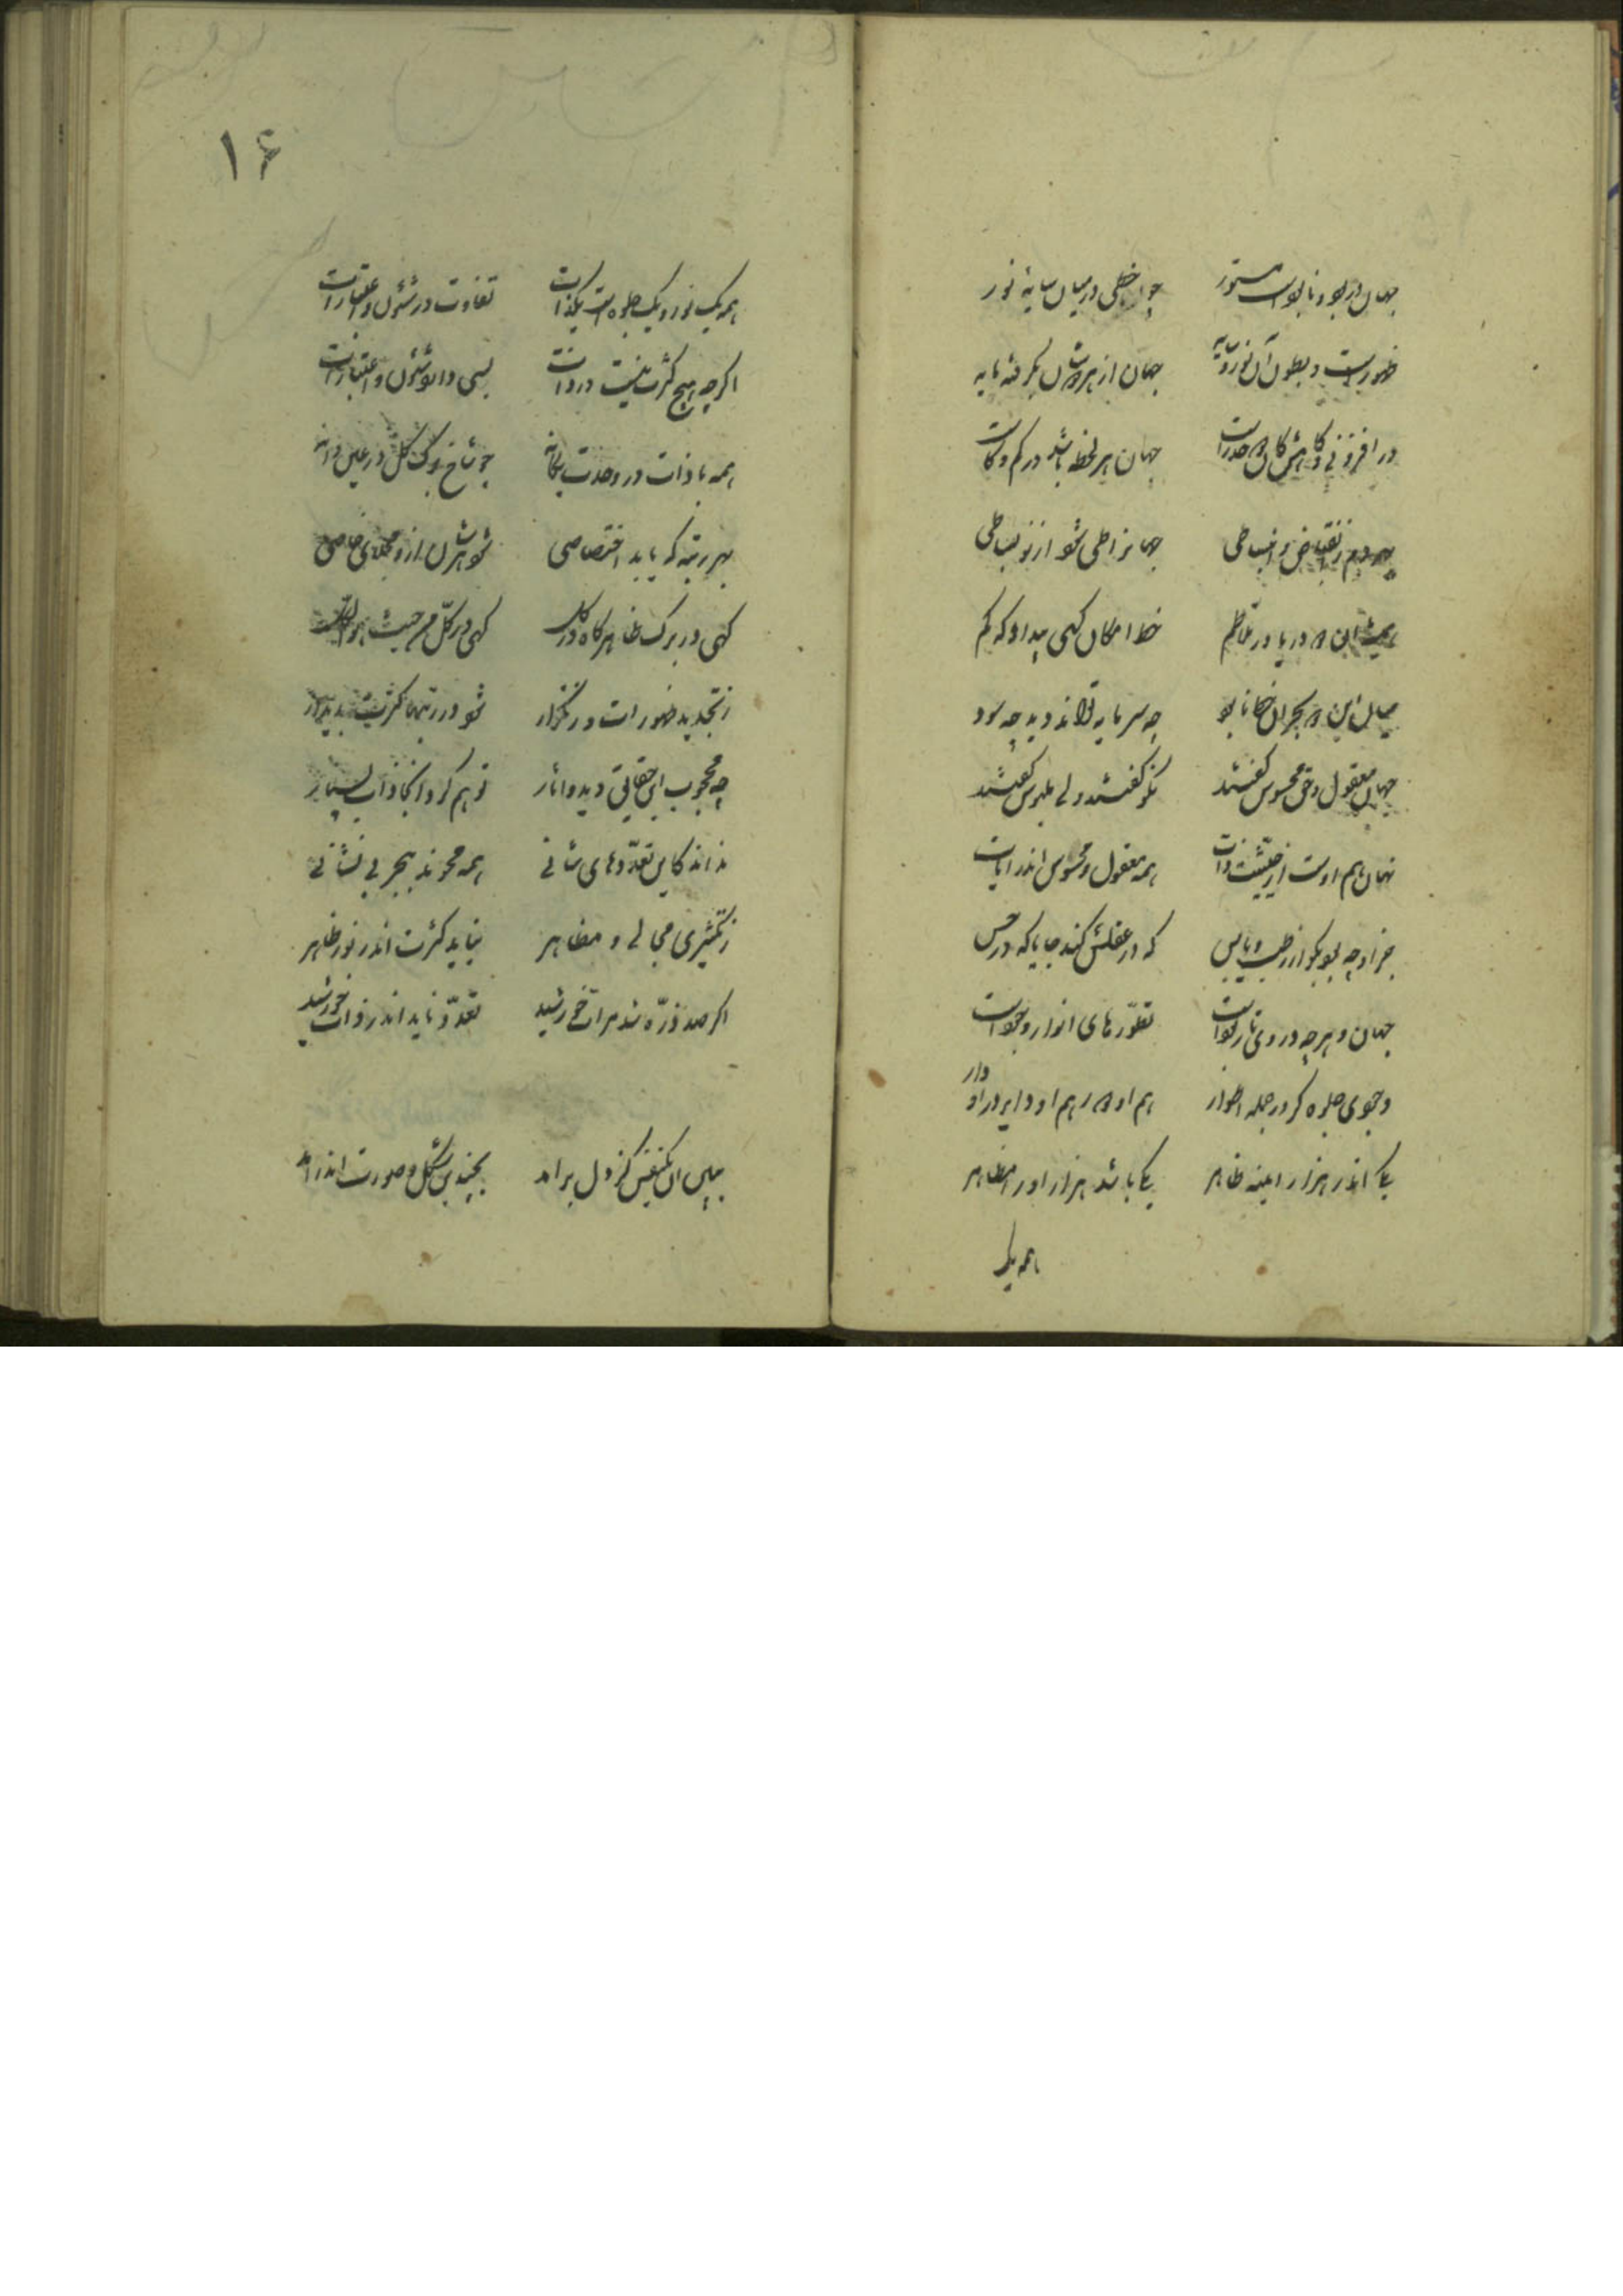 جهان در بود و نابود است مستور چو خطی در میان سایهٔ نور
ظهور است و بطون آن نور و سایه جهان از هر دوشان بگرفته مایه
در افزونی و کاهش کان دو حد راست جهان هر لحظه باشد در کم و کاست
بهر دم ز انقباض و انبساطی جهانرا طی شود از نو بساطی
همیشه این دو دریا در تلاطم خط امکان گهی پیدا و گه گم
میان این دو بحر آن خط نابود چه سرمایه تواند دید چه سود
جهان معقول و حق محسوس گفتند نکو گفتند ولی
نهان هم اوست از حیثیت ذات همه معقول و محسوس اندر آیات
جز او چه بود بگو از رطب و یابس که در عقلش کند جا یا که در حس
جهان و هر چه در وی تار و پود است تطورهای انوار وجود است
وجودی جلوه گر در جمله اطوار هم او دار هم او دایر در ادوار
یکی اندر هزار آینه ظاهر یکی باشد هزار اندر مظاهر
همه یک
۱۶
همه یک نور و یک جلوه است یک ذات تفاوت در شئون و اعتبارات
اگر چه هیچ کثرت نیست در ذات بسی دارد شئون و اعتبارات
همه با ذات در وحدت یگانه چو شاخ و برگ و گل در عین دانه
بهر رتبه که یابد اختصاصی شود هر شان ازو مجلای خاصی
گهی در برگ ظاهر گاه در گل گهی در کل من حیث هو الکل
ز تجدید ظهورات و ز تکرار شود در رتبها کثرت پدیدار
چه محجوب این حقایق دید و آثار توهم کرد آنجا ذات بسیار
نداند کاین تعددهای شانی همه محوند ببحر بی نشانی
ز تکثیری مجالی و مظاهر نیاید کثرت اندر نور ظاهر
اگر صد ذره شد مرآت خورشید تعدد ناید اندر ذات خورشید
ببین آن یک نفس کز دل برآمد بچندین شکل و صورت اندر آمد